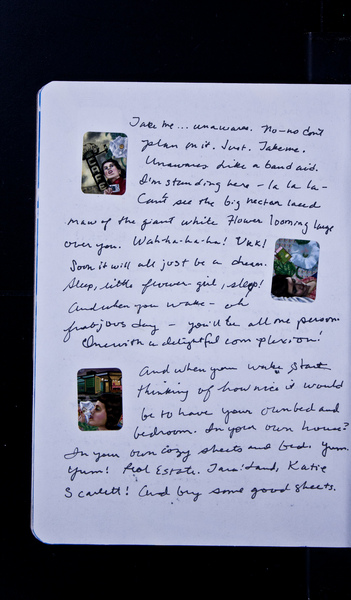 Take me... unawares. No-no don't
plan on it. Just. Take me.
Unawares. Like a bandaid.
I'm standing here - la la la -
Can't see the big nectar laced
maw of the giant white flower looming large
over you. Wah-ha-ha-ha!
Soon it will all just be a dream.
Sleep, little flower girl, sleep!
And when you wake - oh
frabjous day - you'll be all one person.
One with a delightful complexion!
And when you wake start
thinking of how nice it would
be to have your own bed and
bedroom. In your own house?
In your own cozy sheets and bed. Yum.
Yum! Real Estate. Tara! Land, Katie
Scarlett! And buy some good sheets.